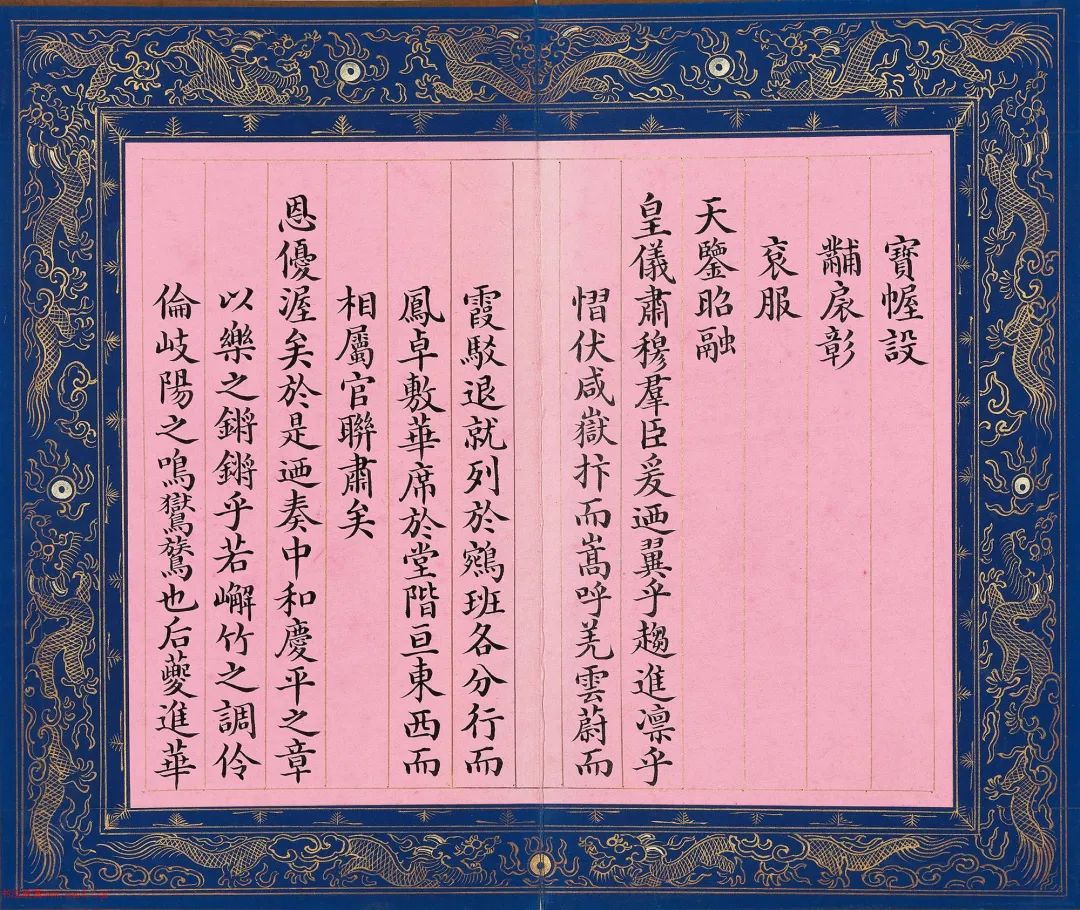 寶幄設
黼扆彰
袞服
天鑒昭融
皇儀肅穆羣臣爰迺翼乎趨進凛乎
慴伏咸嶽抃而嵩呼羌雲蔚而
霞駁退就列於鵷班各分行而
鳳卓敷華席於堂階亘東西而
相屬官聯肅矣
恩優渥矣於是迺奏中和慶平之章
以樂之鏘鏘乎若嶰竹之調伶
倫岐陽之鳴鸑鷟也后夔進華